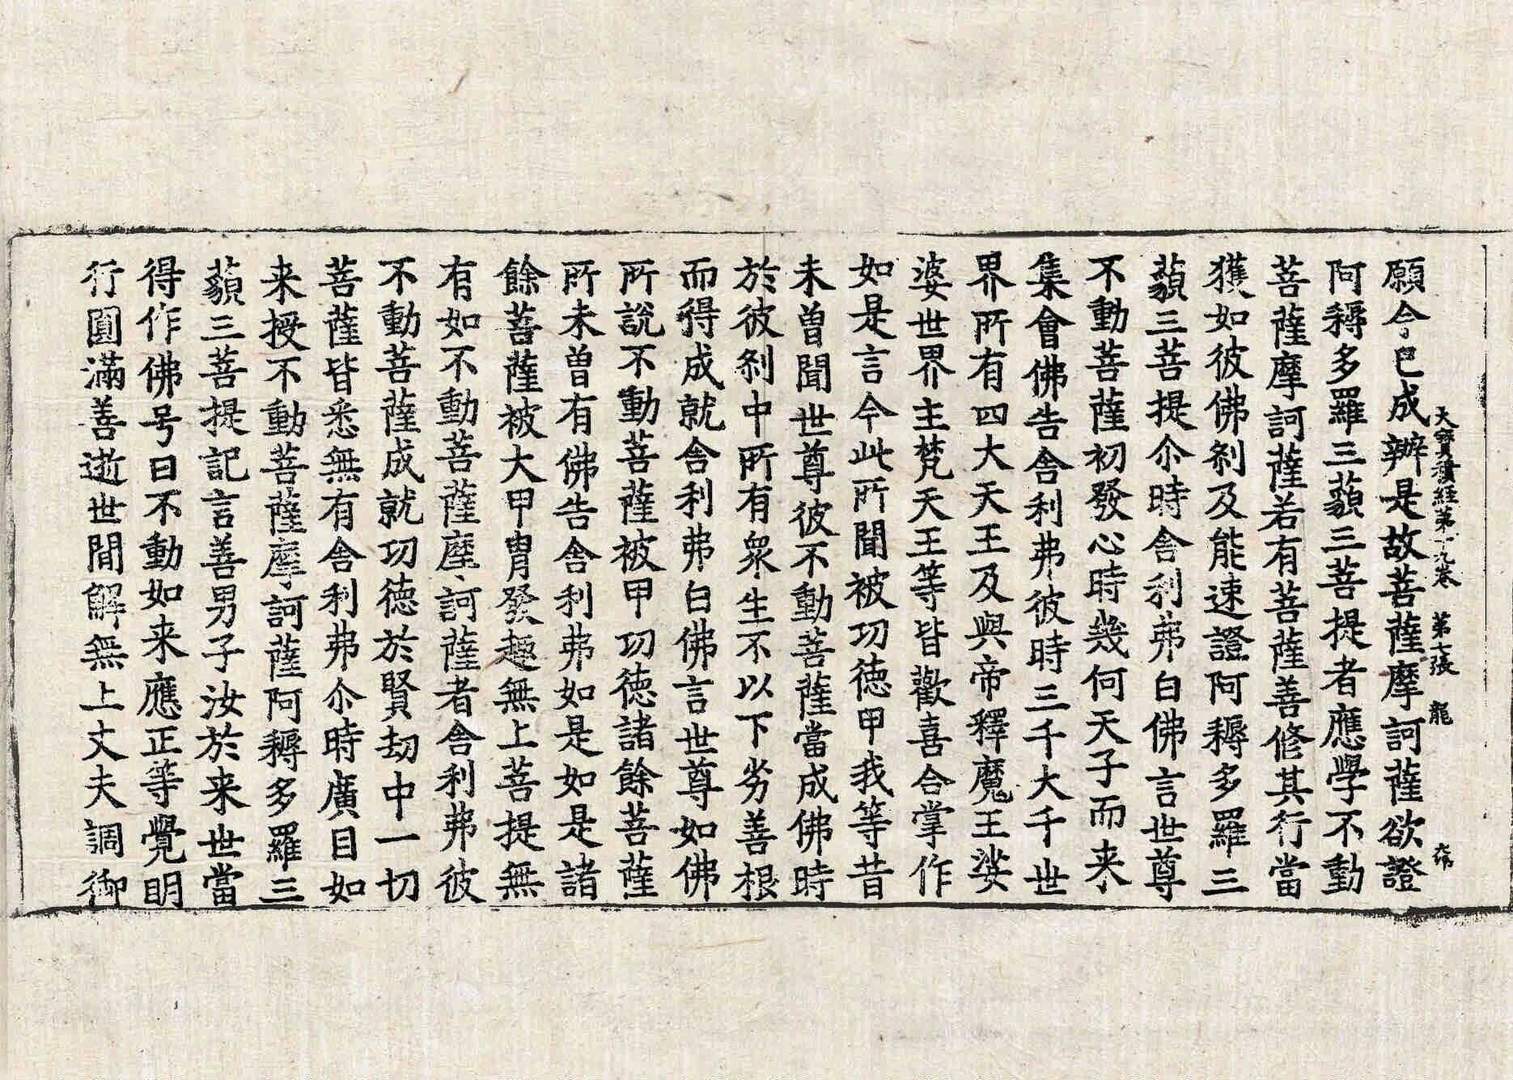 大寶積經第十九卷 第七張 龍
願今已成辦是故菩薩摩訶薩欲證
阿耨多羅三藐三菩提者應學不動
菩薩摩訶薩若有菩薩善修其行當
獲如彼佛刹及能速證阿耨多羅三
藐三菩提尒時舍利弗白佛言世尊
不動菩薩初發心時幾何天子而来
集會佛告舍利弗彼時三千大千世
界所有四大天王及與帝釋魔王娑
婆世界主梵天王等皆歡喜合掌作
如是言今此所聞被功德甲我等昔
未曽聞世尊彼不動菩薩當成佛時
於彼刹中所有衆生不以下劣善根
而得成就舍利弗白佛言世尊如佛
所說不動菩薩被甲功德諸餘菩薩
所未曽有佛告舍利弗如是如是諸
餘菩薩被大甲冑發趣無上菩提無
有如不動菩薩摩訶薩者舍利弗彼
不動菩薩成就功德於賢劫中一切
菩薩皆悉無有舍利弗尒時廣目如
来授不動菩薩摩訶薩阿耨多羅三
藐三菩提記言善男子汝於来世當
得作佛号曰不動如来應正等覺明
行圓滿善逝世間解無上丈夫調御